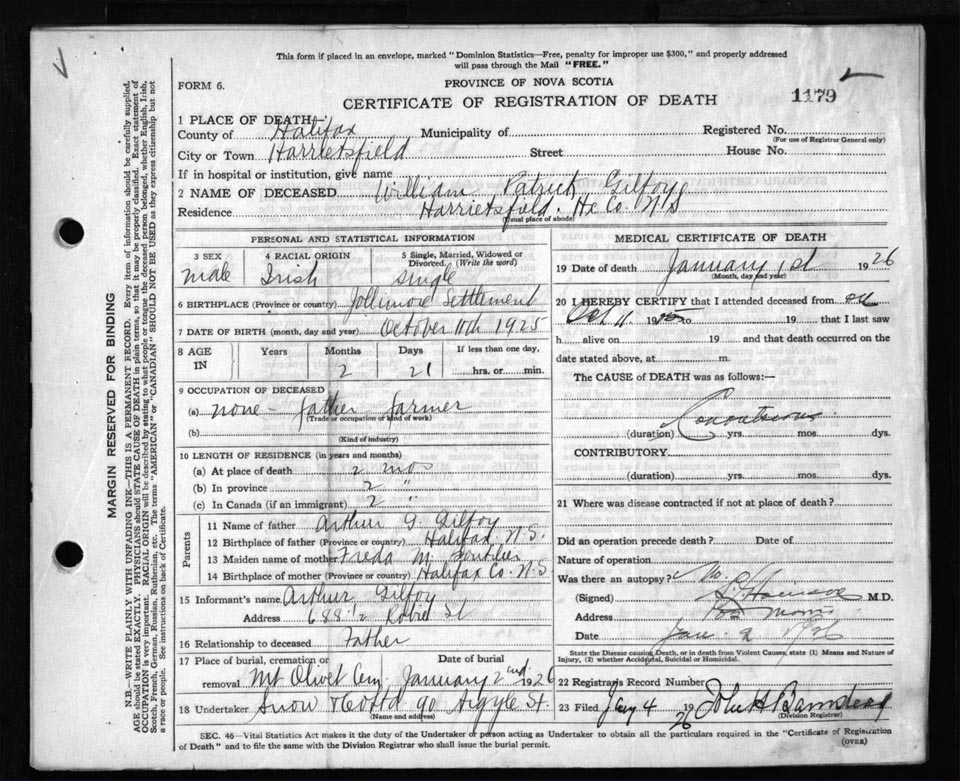 This form if placed in an envelope, marked "Dominion Statistics—Free, penalty for improper use $300," and properly addressed
will pass through the Mail "FREE."
FORM 6.
PROVINCE OF NOVA SCOTIA
CERTIFICATE OF REGISTRATION OF DEATH
1179
1 PLACE OF DEATH—
County of Halifax Municipality of Registered No.
(For use of Registrar General only)
City or Town Harrietsfield Street House No.
If in hospital or institution, give name
2 NAME OF DECEASED William Patrick Gilfoy
Residence Harrietsfield. Hx Co. N S
(Usual place of abode)
PERSONAL AND STATISTICAL INFORMATION
3 SEX
male
4 RACIAL ORIGIN
Irish
5 Single, Married, Widowed or
Divorced. (Write the word)
single
6 BIRTHPLACE (Province or country) Jollimore Settlement
7 DATE OF BIRTH (month, day and year) October 11th 1925
8 AGE IN
Years Months Days If less than one day,
2 21 hrs. or min.
9 OCCUPATION OF DECEASED
(a) none - father farmer
(Trade or occupation or kind of work)
(b)
(Kind of industry)
10 LENGTH OF RESIDENCE (in years and months)
(a) At place of death 2 mos
(b) In province 2 "
(c) In Canada (if an immigrant) 2 "
Parents
11 Name of father Arthur G. Gilfoy
12 Birthplace of father (Province or country) Halifax N.S.
13 Maiden name of mother Freda M. Boutilier
14 Birthplace of mother (Province or country) Halifax Co. N.S
15 Informant's name Arthur Gilfoy
Address 688 1/2 Robie St
16 Relationship to deceased Father
17 Place of burial, cremation or Date of burial
removal Mt Olivet Cem. January 2nd. 1926
18 Undertaker Snow & Co Ltd 90 Argyle St.
(Name and address)
MEDICAL CERTIFICATE OF DEATH
19 Date of death January 1st 1926
(Month, day and year)
20 I HEREBY CERTIFY that I attended deceased from
Oct 11 19 to 19 that I last saw
h alive on 19 and that death occurred on the
date stated above, at m.
The CAUSE of DEATH was as follows:
(duration) yrs. mos. dys.
CONTRIBUTORY.
(duration) yrs. mos. dys.
21 Where was disease contracted if not at place of death?
Did an operation precede death? Date of
Nature of operation
Was there an autopsy? No.
(Signed) M.D.
Address
Date Jan. 2 1926
State the Disease causing Death, or in death from Violent Causes, state (1) Means and Nature of
Injury, (2) whether Accidental, Suicidal or Homicidal.
22 Registrar's Record Number
23 Filed Jany 4 1926 John H Barnstead
(Division Registrar)
SEC. 46—Vital Statistics Act makes it the duty of the Undertaker or person acting as Undertaker to obtain all the particulars required in the "Certificate of Registration
of Death" and to file the same with the Division Registrar who shall issue the burial permit. (OVER)
MARGIN RESERVED FOR BINDING
N.B.—WRITE PLAINLY WITH UNFADING INK—THIS IS A PERMANENT RECORD. Every item of information should be carefully supplied.
AGE should be stated EXACTLY. PHYSICIANS should STATE CAUSE OF DEATH in plain terms, so that it may be properly classified. Exact statement of
OCCUPATION is very important. RACIAL ORIGIN will be described by stating to what people or tongue the deceased person belonged, whether English, Irish,
Scotch, French, German, Russian, Ruthenian, etc. The terms "AMERICAN" or "CANADIAN" SHOULD NOT BE USED as they express citizenship but not
a race or people. See instructions on back of Certificate.